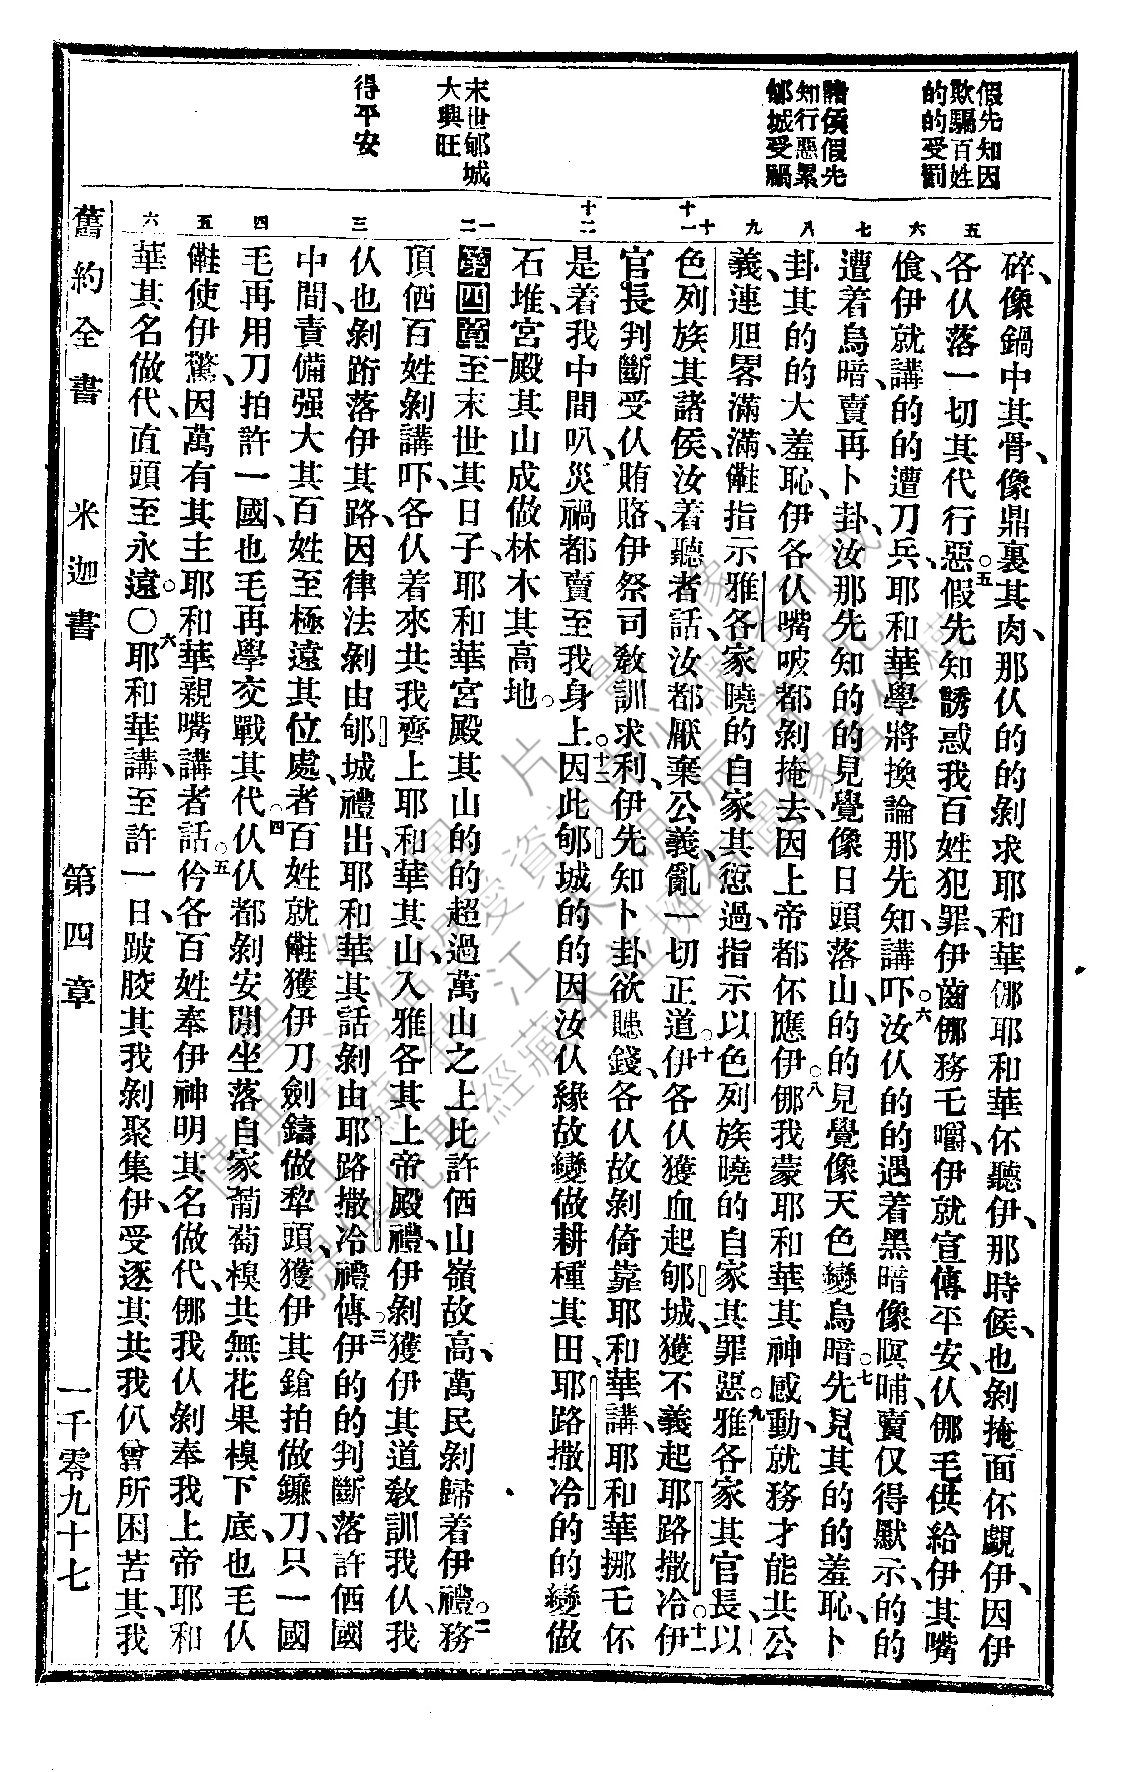 假先知因
欺騙百姓
的的受罰
諸侯假先
知行惡累
郇城受禍
末世郇城
大興旺
得平安
五
六
七
八
九
十
十一
十二
一
二
三
四
五
六
碎、像鍋中其骨、像鼎裏其肉、那伩的的剝求耶和華、㑚耶和華伓聽伊、那時候、也剝掩面伓覷伊、因伊
各伩落一切其代行惡。五假先知誘惑我百姓犯罪、伊齒㑚務乇嚼、伊就宣傳平安、伩㑚毛供給伊其嘴
飡、伊就講的的遭刀兵、耶和華學將換論那先知、講吓、六汝伩的的遇着黑暗像暝晡、賣仅得默示、的的
遭着烏暗、賣再卜卦、汝那先知的的見覺像日頭落山、的的見覺像天色變烏暗。七先見其的的羞恥、卜
卦其的的大羞恥、伊各伩嘴㖞都剝掩去、因上帝都伓應伊。八㑚我蒙耶和華其神感動、就務才能共公
義、連胆畧滿滿、㒕指示雅各家曉的自家其愆過、指示以色列族曉的自家其罪惡。九雅各家其官長、以
色列族其諸侯、汝着聽者話、汝都厭棄公義、亂一切正道。十伊各伩獲血起郇城、獲不義起耶路撒冷。十一伊
官長判斷受伩賄賂、伊祭司教訓求利、伊先知卜卦欲賺錢、各伩故剝倚靠耶和華、講、耶和華挪乇伓
是着我中間叭、災禍都賣至我身上。十二因此郇城的的因汝伩緣故變做耕種其田、耶路撒冷的的變做
石堆、宮殿其山成做林木其高地。
第四章一至末世其日子、耶和華宮殿其山的的超過萬山之上、比許㑄山嶺故高、萬民剝歸着伊禮。二務
頂㑄百姓剝講吓、各伩着來共我齊上耶和華其山、入雅各其上帝殿禮、伊剝獲伊其道教訓我伩、我
伩也剝跡落伊其路、因律法剝由郇城禮出、耶和華其話剝由耶路撒冷禮傳。三伊的的判斷落許㑄國
中間、責備强大其百姓至極遠其位處、者百姓就㒕獲伊刀劍鑄做犂頭、獲伊其鎗拍做鐮刀、只一國
毛再用刀拍許一國、也毛再學交戰其代。四伩伩都剝安閒坐落自家葡萄模共無花果模下底、也毛伩
㒕使伊驚、因萬有其主耶和華親嘴講者話。五伱各百姓奉伊神明其名做代、㑚我伩剝奉我上帝耶和
華其名做代、直頭至永遠。〇六耶和華講、至許一日、跛胶其我剝聚集、伊受逐其共我仈曾所困苦其、我
舊約全書　米迦書　第四章　一千零九十七